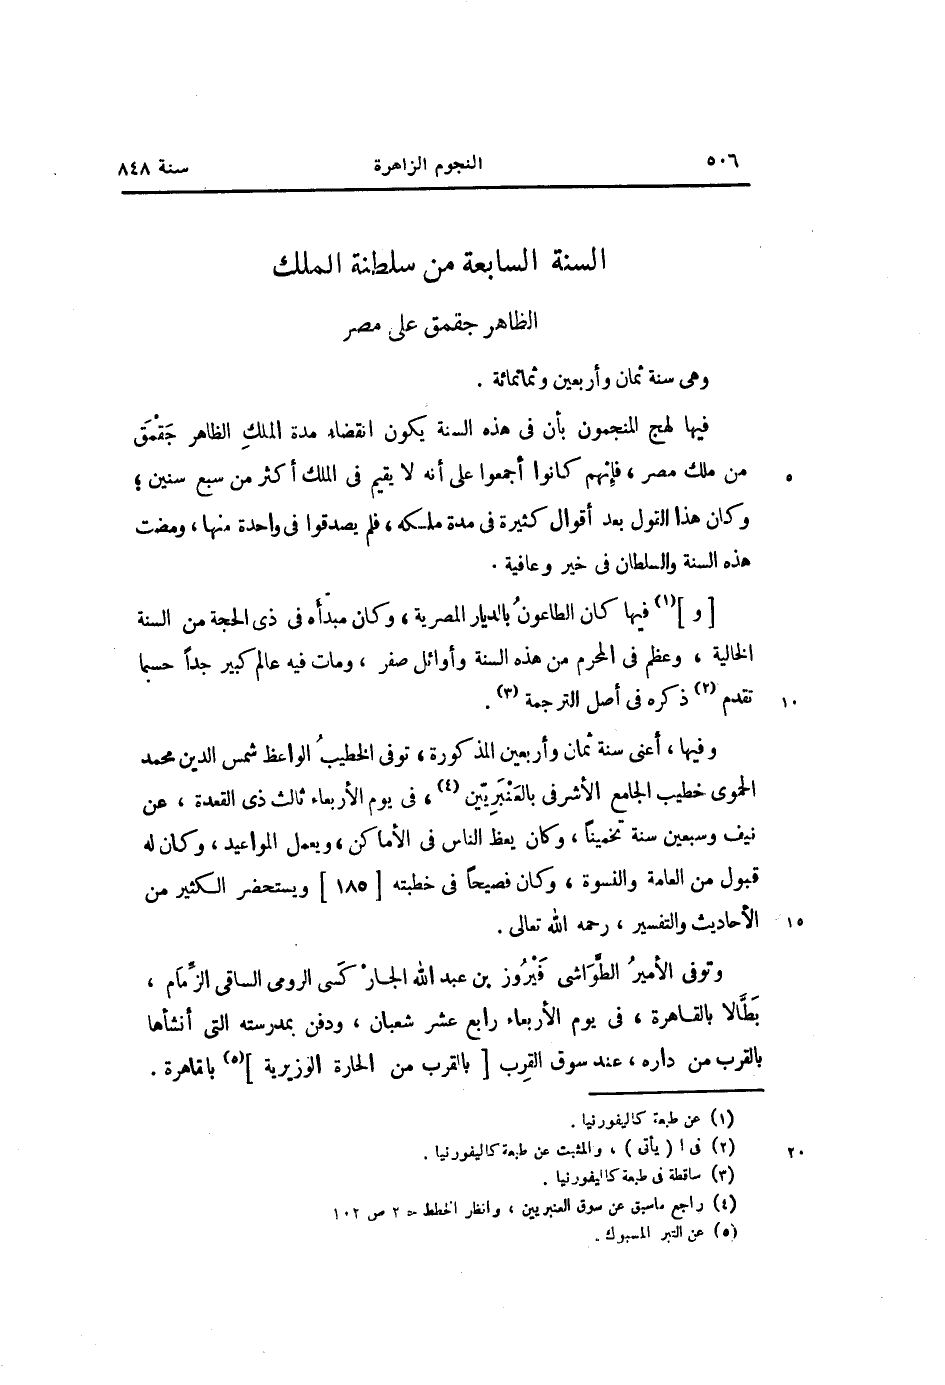 ٥٠٦ النجوم الزاهرة سنة ٨٤٨
السنة السابعة من سلطنة الملك
الظاهر جقمق على مصر
وهى سنة ثمان وأربعين وثمانمائة .
فيها لهج المنجمون بأن فى هذه السنة يكون انقضاء مدة الملكِ الظاهر جَقْمَق
من ملك مصر ، فإنهم كانوا أجمعوا على أنه لا يقيم فى الملك أكثر من سبع سنين ؛ ٥
وكان هذا القول بعد أقوال كثيرة فى مدة ملكه ، فلم يصدقوا فى واحدة منها ، ومضت
هذه السنة والسلطان فى خير وعافية .
[ و ](١) فيها كان الطاعونُ بالديار المصرية ، وكان مبدَأه فى ذى الحجة من السنة
الخالية ، وعظم فى المحرم من هذه السنة وأوائل صفر ، ومات فيه عالم كبير جداً حسبما
تقدم (٢) ذكره فى أصل الترجمة (٣) . ١٠
وفيها ، أعنى سنة ثمان وأربعين المذكورة ، توفى الخطيبُ الواعظ شمس الدين محمد
الحموى خطيب الجامع الأشرفى بالعَنْبَرِيّين (٤) ، فى يوم الأربعاء ثالث ذى القعدة ، عن
نيف وسبعين سنة تخميناً ، وكان يعظ الناس فى الأماكن ، ويعمل المواعيد ، وكان له
قبول من العامة والنسوة ، وكان فصيحاً فى خطبته [ ١٨٥ ] ويستحضر الكثير من
الأحاديث والتفسير ، رحمه الله تعالى . ١٥
وتوفى الأميرُ الطَّوَاشى فَيْرُوز بن عبد الله الجارْكَسى الرومى الساقى الزِّمَام ،
بَطَّالا بالقاهرة ، فى يوم الأربعاء رابع عشر شعبان ، ودفن بمدرسته التى أنشأها
بالقرب من داره ، عند سوق القِرب [ بالقرب من الحارة الوزيرية ](٥) بالقاهرة .
(١) عن طبعة كاليفورنيا .
(٢) فى ا ( يأتى ) ، والمثبت عن طبعة كاليفورنيا . ٢٠
(٣) ساقطة فى طبعة كاليفورنيا .
(٤) راجع ماسبق عن سوق العنبريين ، وانظر الخطط ح ٢ ص ١٠٢
(٥) عن التبر المسبوك .